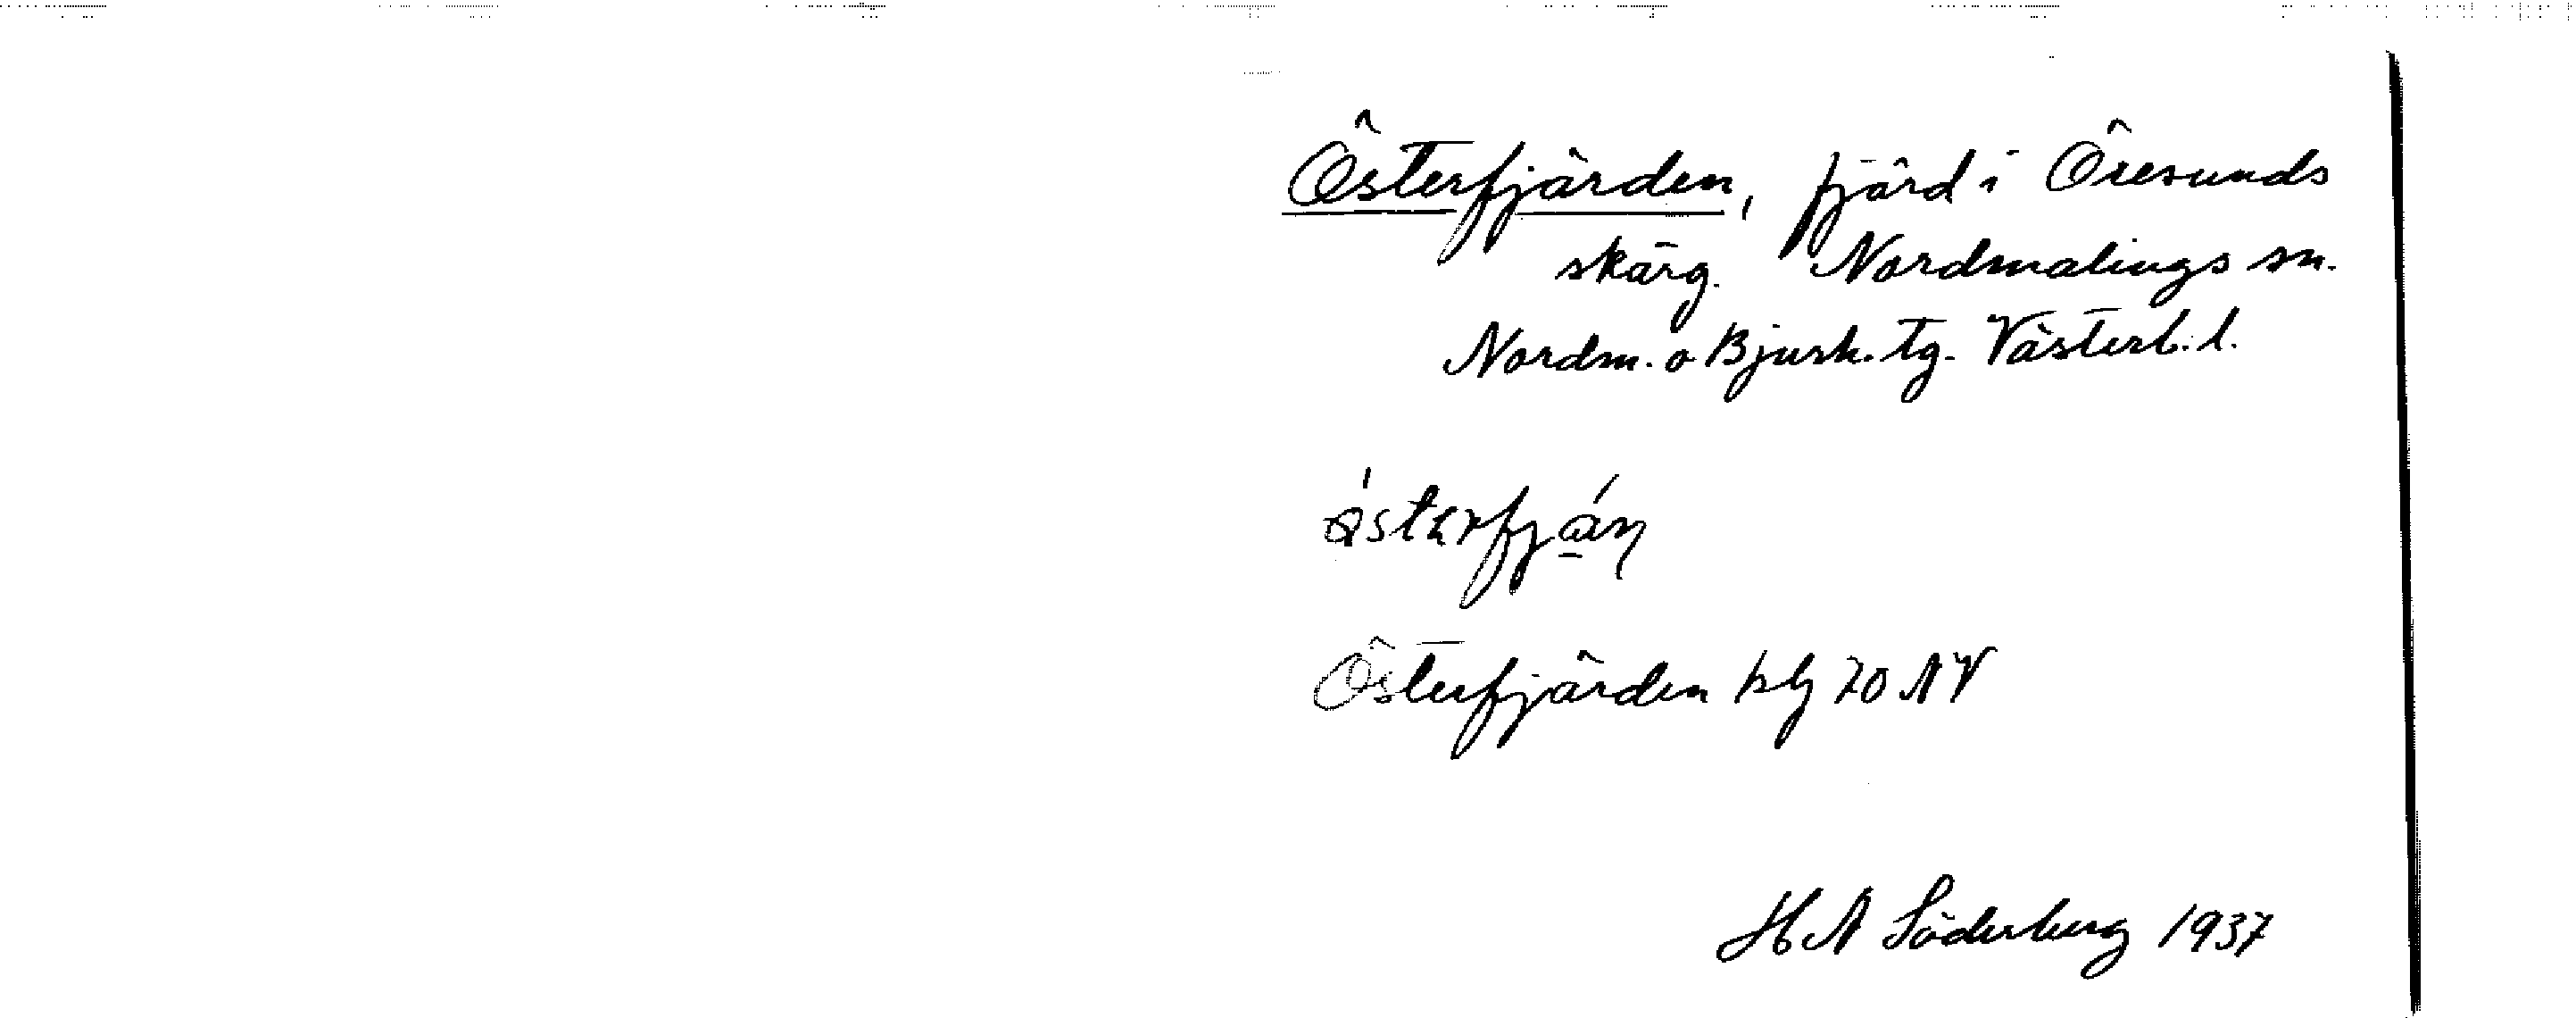 Österfjärden, fjärd i Öresunds
skärg. Nordmalings sn.
Nordm. o Bjurh. tg. Västerb. l.
Österfjärden blg 70 NV
H N Söderberg 1937